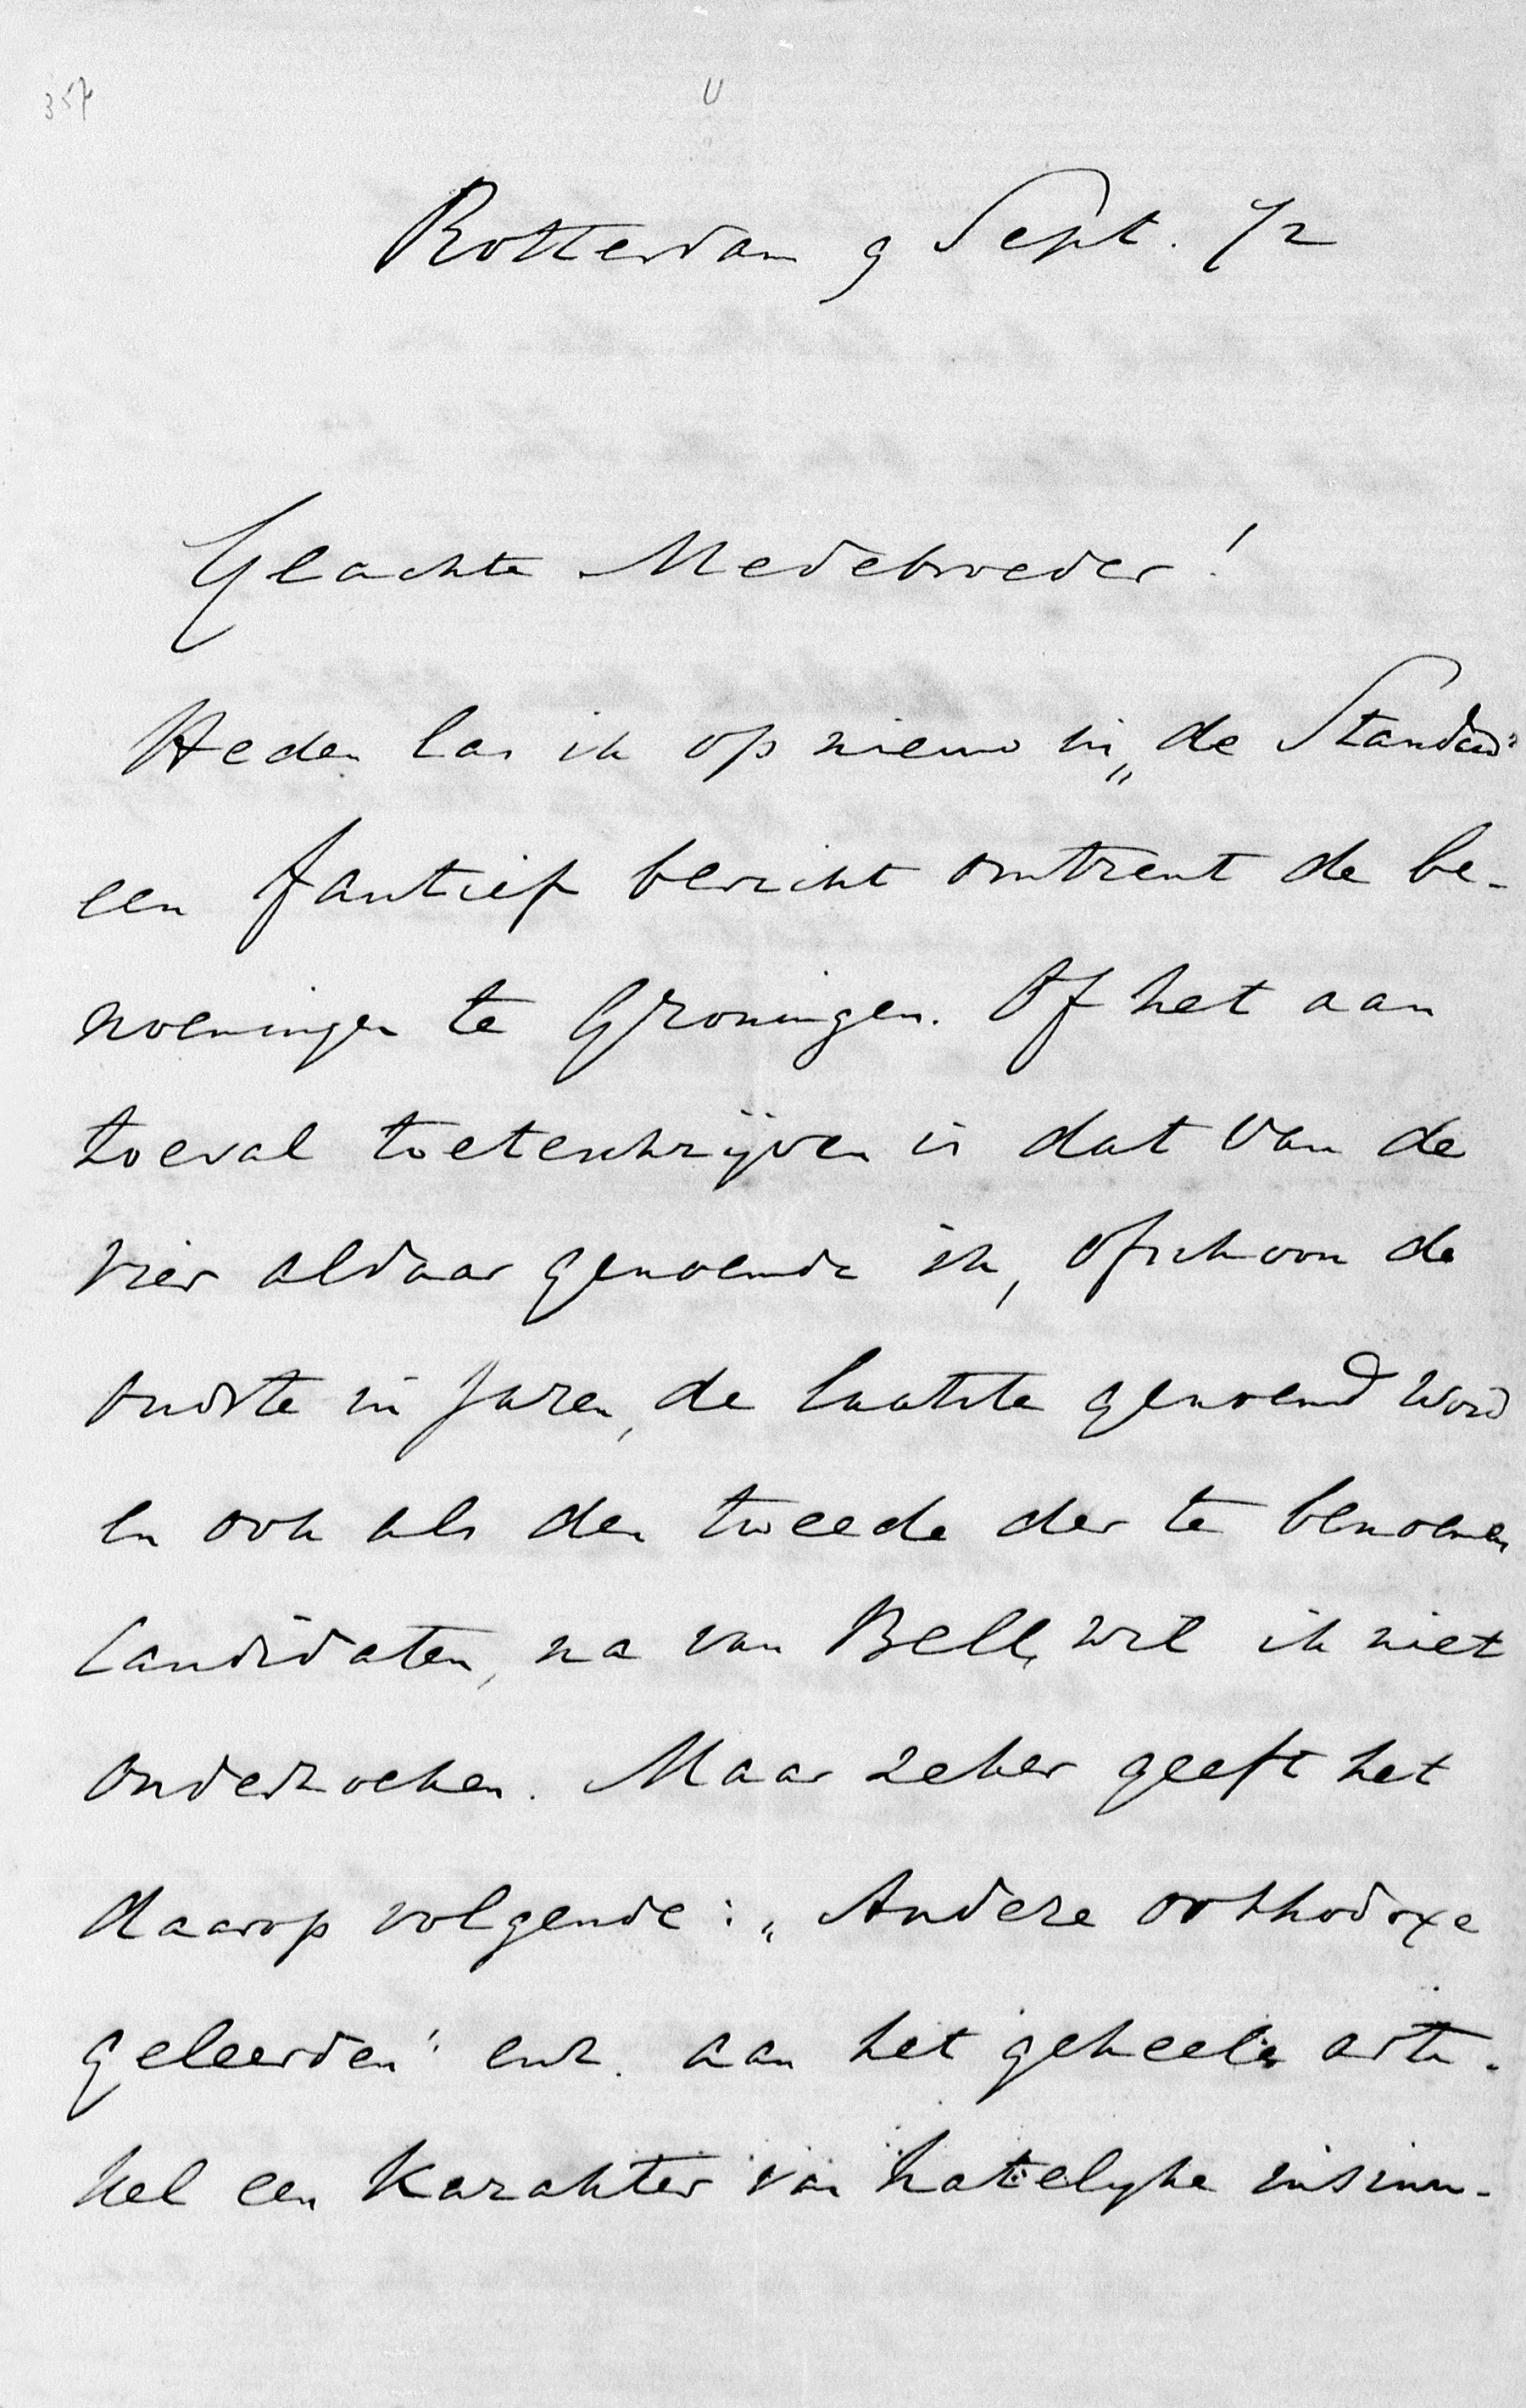 357
Rotterdam 9 Sept. 72
Geachte Medebroeder!
Heden las ik op nieuw in „de Standard"
een foutief bericht omtrent de be-
noemingen te Groningen. Of het aan
toeval toeteschrijven is dat van de
vier aldaar genoemde ik, ofschoon de
oudste in jaren, de laatste genoemd word
en ook als den tweede der te benoemen
Candidaten, na van Bell, wil ik niet
onderzoeken. Maar zeker geeft het
daarop volgende: „Andere orthodoxe
geleerden" enz. aan het geheele arti-
kel een karakter van hatelyke insinu-